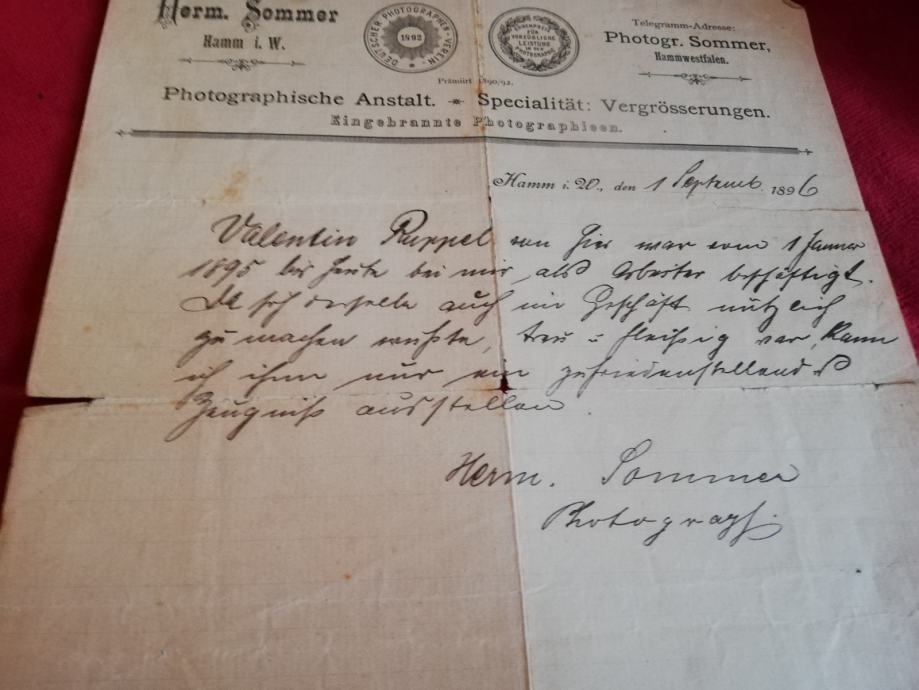 Herm. Sommer
Hamm i. W.
DEUTSCHER PHOTOGRAPHEN-VEREIN
1892
EHRENPREIS
FÜR
VORZÜGLICHE
LEISTUNG
IN DER
PHOTOGRAPHIE
Telegramm-Adresse:
Photogr. Sommer,
Hammwestfalen.
Prämiirt 1890/92.
Photographische Anstalt. Specialität: Vergrösserungen.
Eingebrannte Photographieen.
Hamm i. W., den 1 Septemb. 1896
Valentin Ruppel von hier war vom 1 Januar
1895 bis heute bei mir als Arbeiter beschäftigt.
Da sich derselbe auch im Geschäft nützlich
zu machen wußte, treu u fleißig war, kann
ich ihm nur ein zufriedenstellendes
Zeugniß ausstellen.
Herm. Sommer
Photograph.